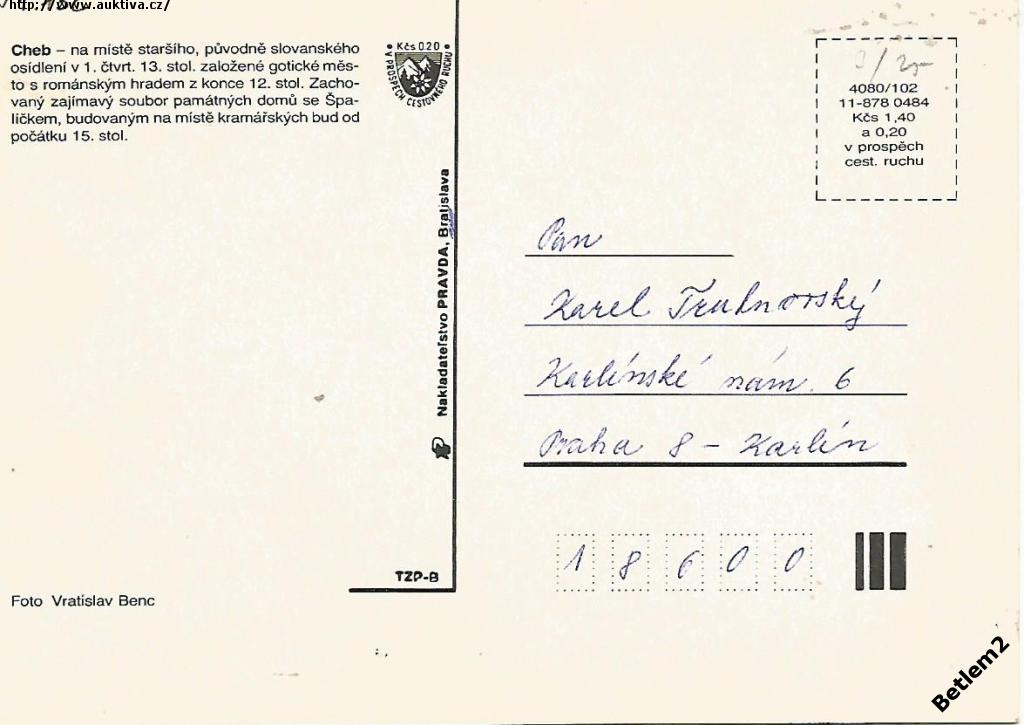 http://www.auktiva.cz/
Cheb – na místě staršího, původně slovanského
osídlení v 1. čtvrt. 13. stol. založené gotické měs-
to s románským hradem z konce 12. stol. Zacho-
vaný zajímavý soubor památných domů se Špa-
líčkem, budovaným na místě kramářských bud od
počátku 15. stol.
• Kčs 0.20 •
V PROSPĚCH CESTOVNÉHO RUCHU
Nakladateľstvo PRAVDA, Bratislava
TZP-B
Foto Vratislav Benc
4080/102
11-878 0484
Kčs 1,40
a 0,20
v prospěch
cest. ruchu
Pan
Karel
Karlínské nám. 6
Praha 8 – Karlín
18600
Betlem2